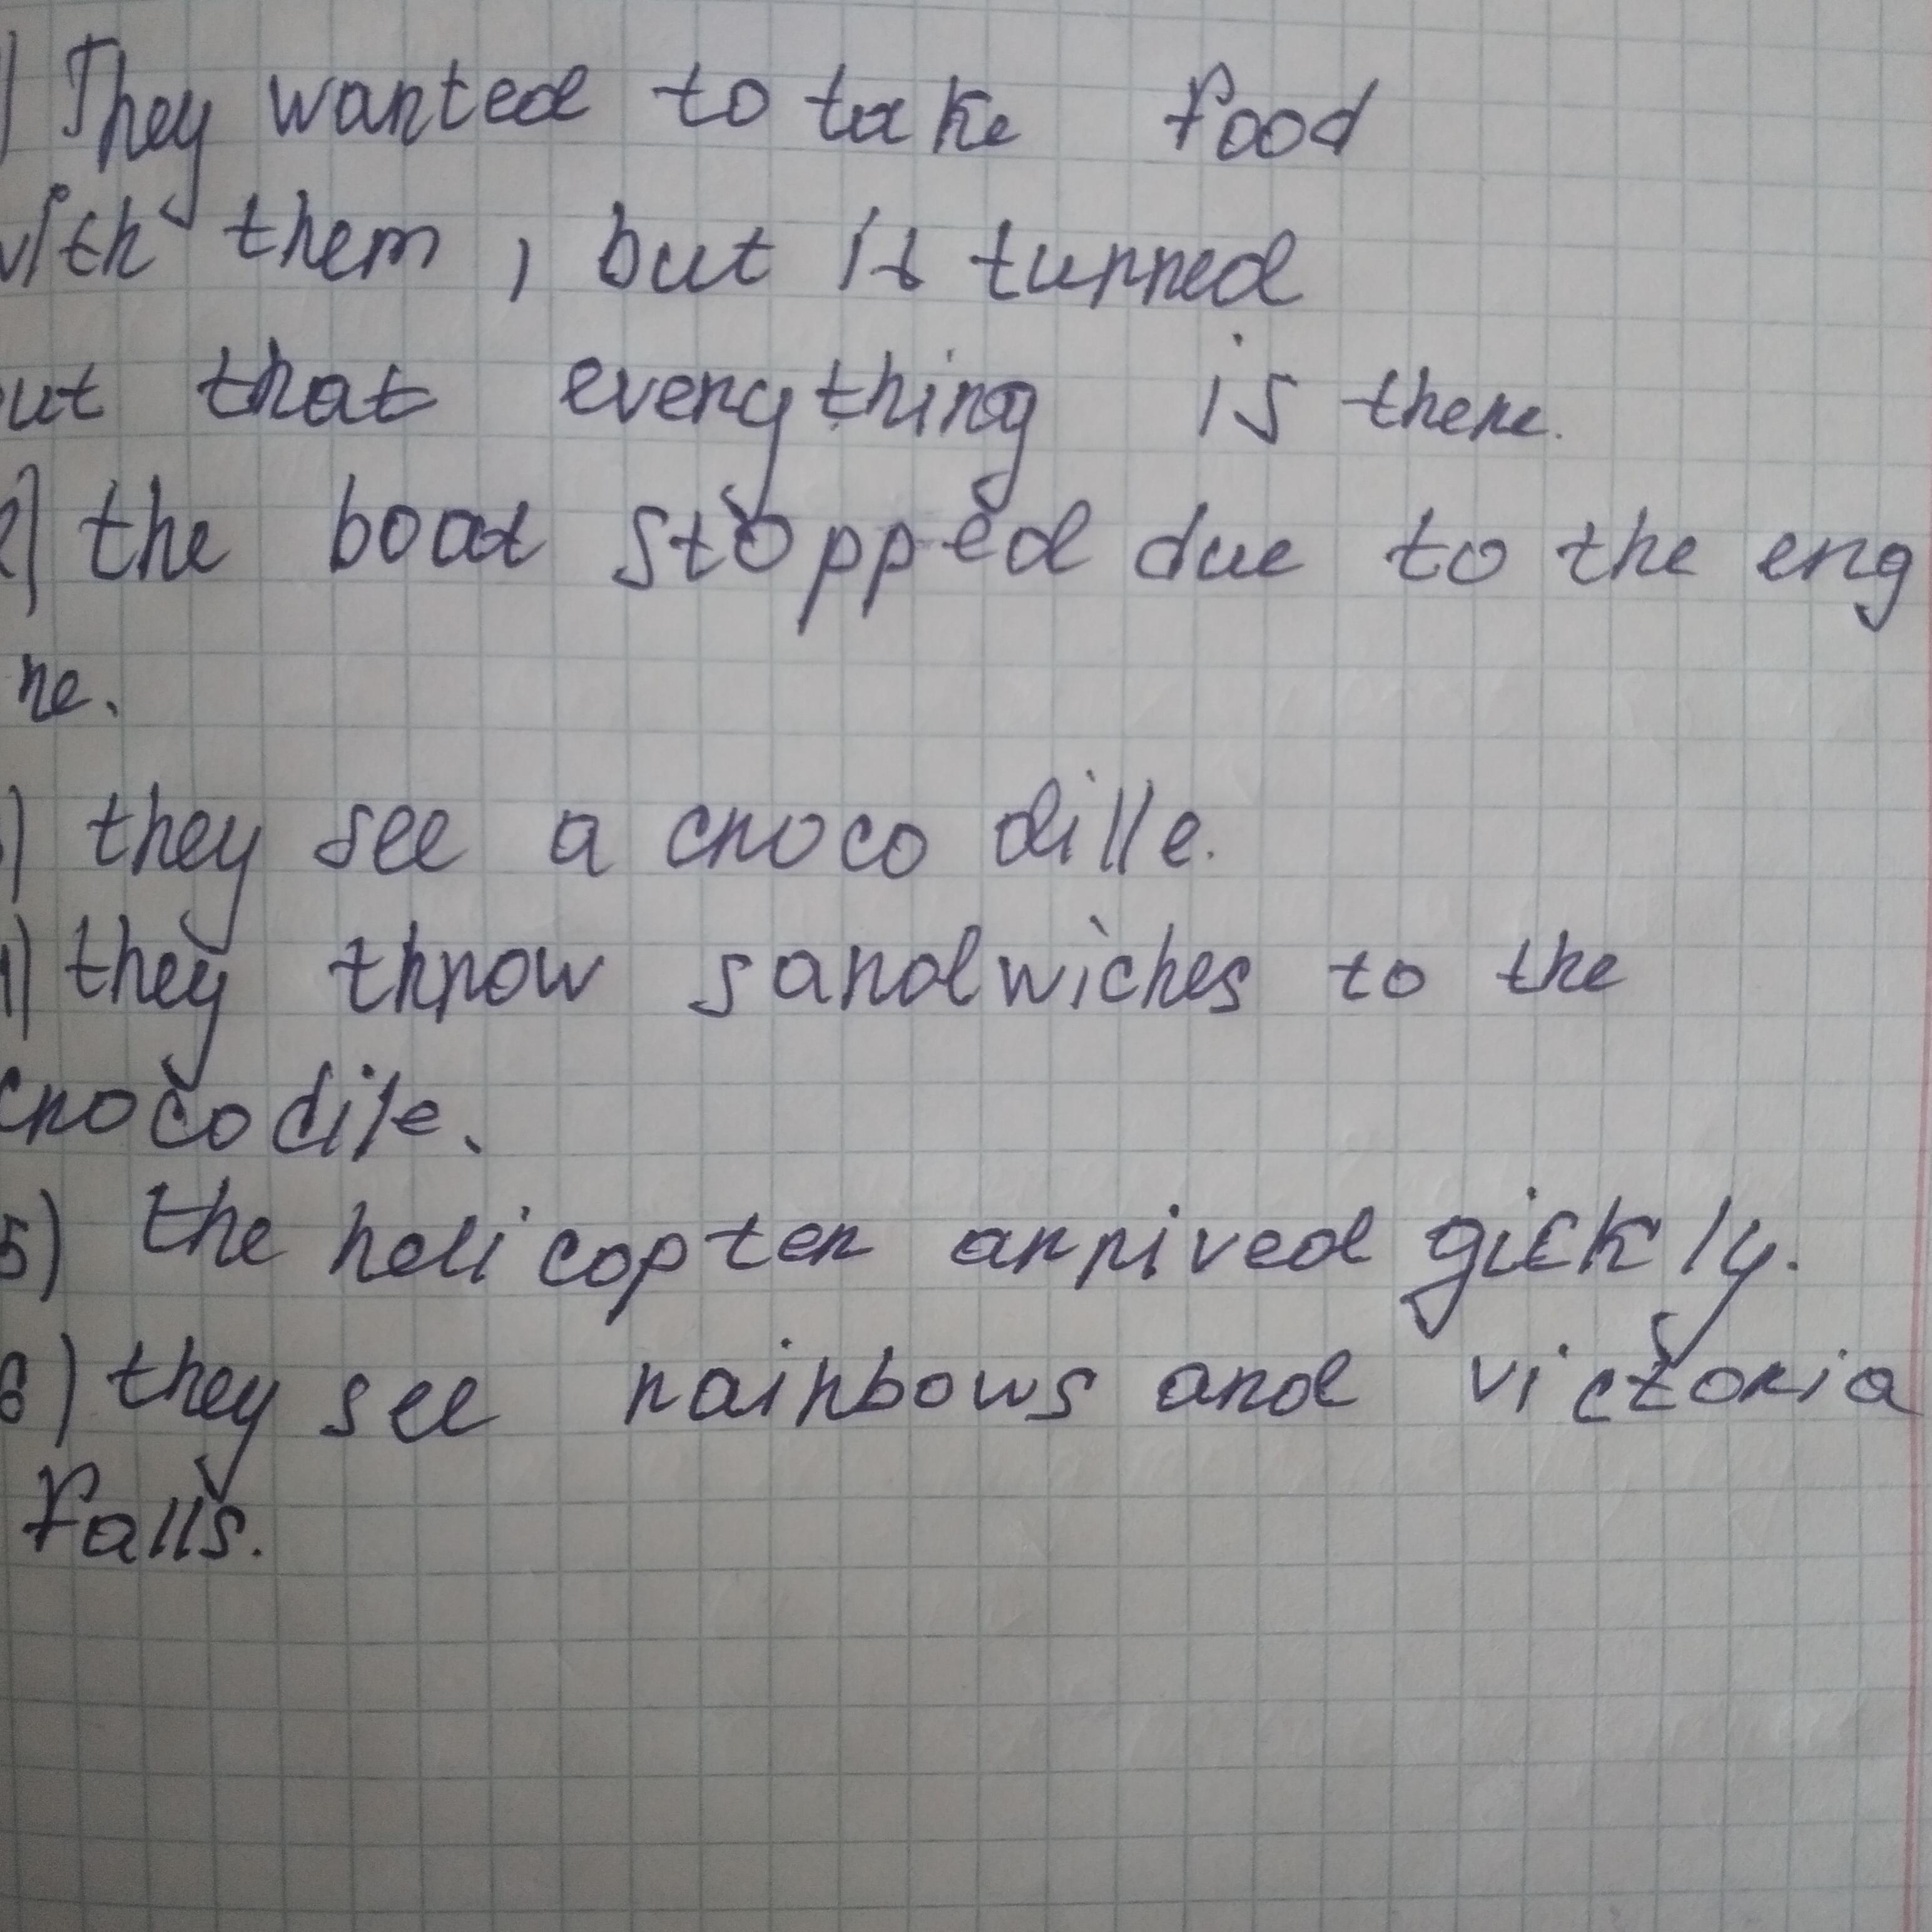 ) They wanted to take food
with them, but it turned
out that everything is there.
2) the boat stopped due to the eng
ne.
) they see a crocodille.
4) they throw sandwiches to the
crocodile.
5) the helicopter arrived gickly.
6) they see rainbows and victoria
falls.